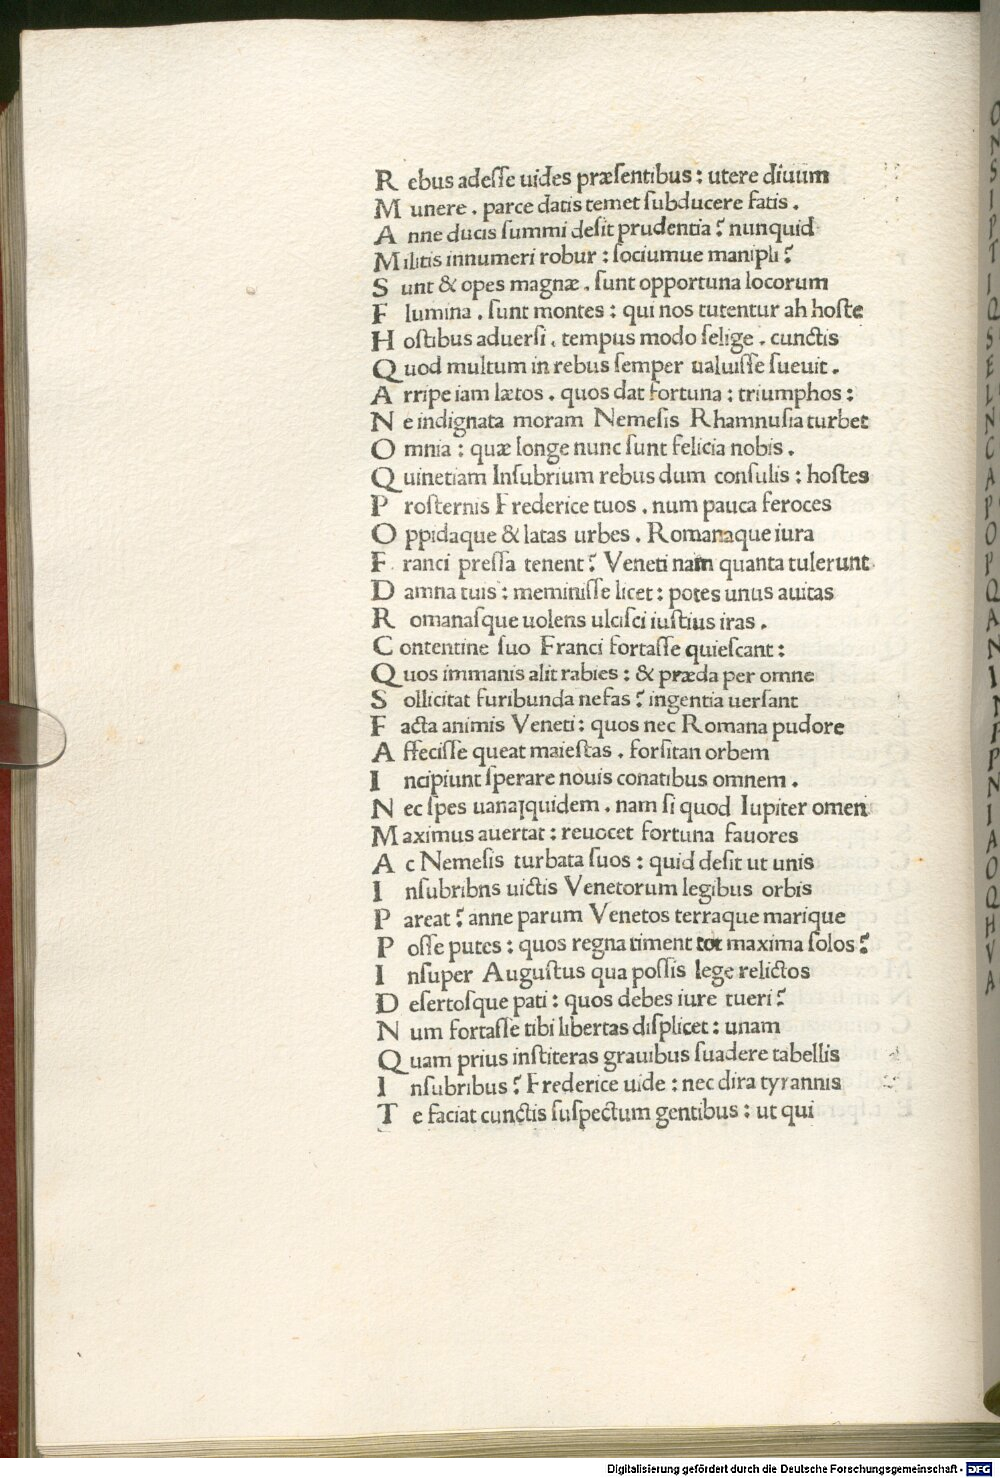 R ebus adeſſe uides præſentibus : utere diuum
M unere . parce datis temet ſubducere fatis .
A nne ducis ſummi deſit prudentia ? nunquid
M ilitis innumeri robur : ſociumue manipli ?
S unt & opes magnæ . ſunt opportuna locorum
F lumina . ſunt montes : qui nos tutentur ah hoſte
H oſtibus aduerſi . tempus modo ſelige . cunctis
Q uod multum in rebus ſemper ualuiſſe ſueuit .
A rripe iam lætos . quos dat fortuna : triumphos :
N e indignata moram Nemeſis Rhamnuſia turbet
O mnia : quæ longe nunc ſunt felicia nobis .
Q uinetiam Inſubrium rebus dum conſulis : hoſtes
P roſternis Frederice tuos . num pauca feroces
O ppidaque & latas urbes . Romanaque iura
F ranci preſſa tenent ? Veneti nam quanta tulerunt
D amna tuis : meminiſſe licet : potes unus auitas
R omanaſque uolens ulciſci iuſtius iras .
C ontentine ſuo Franci fortaſſe quieſcant :
Q uos immanis alit rabies : & præda per omne
S ollicitat furibunda nefas ? ingentia uerſant
F acta animis Veneti : quos nec Romana pudore
A ffeciſſe queat maieſtas . forſitan orbem
I ncipiunt ſperare nouis conatibus omnem .
N ec ſpes uana quidem . nam ſi quod Iupiter omen
M aximus auertat : reuocet fortuna fauores
A c Nemeſis turbata ſuos : quid deſit ut unis
I nſubribns uictis Venetorum legibus orbis
P areat ? anne parum Venetos terraque marique
P oſſe putes : quos regna timent tot maxima ſolos ?
I nſuper Auguſtus qua poſſis lege relictos
D eſertoſque pati : quos debes iure tueri ?
N um fortaſſe tibi libertas diſplicet : unam
Q uam prius inſtiteras grauibus ſuadere tabellis
I nſubribus ? Frederice uide : nec dira tyrannis
T e faciat cunctis ſuſpectum gentibus : ut qui
Digitalisierung gefördert durch die Deutsche Forschungsgemeinschaft - DFG